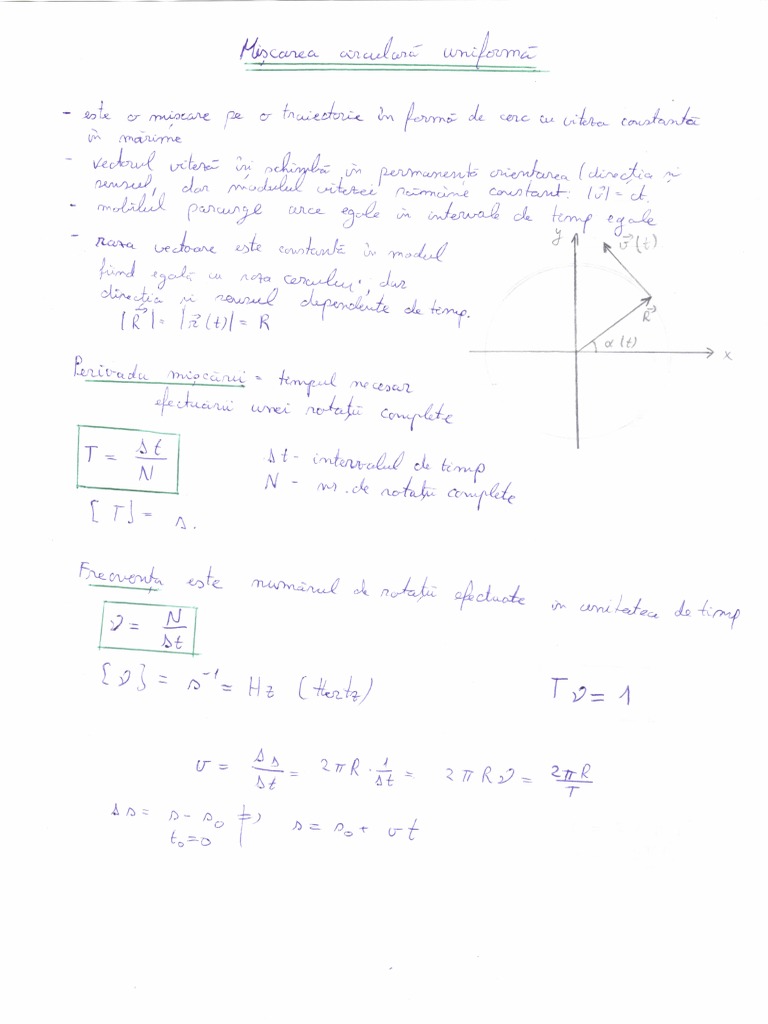 Mișcarea circulară uniformă
- este o mișcare pe o traiectorie în formă de cerc cu viteza constantă
în mărime
- vectorul viteză își schimbă în permanență orientarea (direcția și
sensul, dar modulul vitezei rămâne constant: |v⃗| = ct.
- mobilul parcurge arce egale în intervale de temp egale
- raza vectoare este constantă în modul
fiind egală cu raza cercului, dar
direcția și sensul dependente de temp.
|R⃗| = |r⃗(t)| = R
y
v⃗(t)
R⃗
α(t)
x
Perioada mișcării = tempul necesar
efectuării unei rotații complete
T = Δt/N
Δt - intervalul de timp
N - nr. de rotații complete
[T] = s.
Frecvența este numărul de rotații efectuate în unitatea de timp
ν = N/Δt
[ν] = s⁻¹ = Hz (Hertz)
Tν = 1
v = Δs/Δt = 2πR · 1/Δt = 2πRν = 2πR/T
Δs = s - s₀ | ⇒ s = s₀ + vt
t₀ = 0